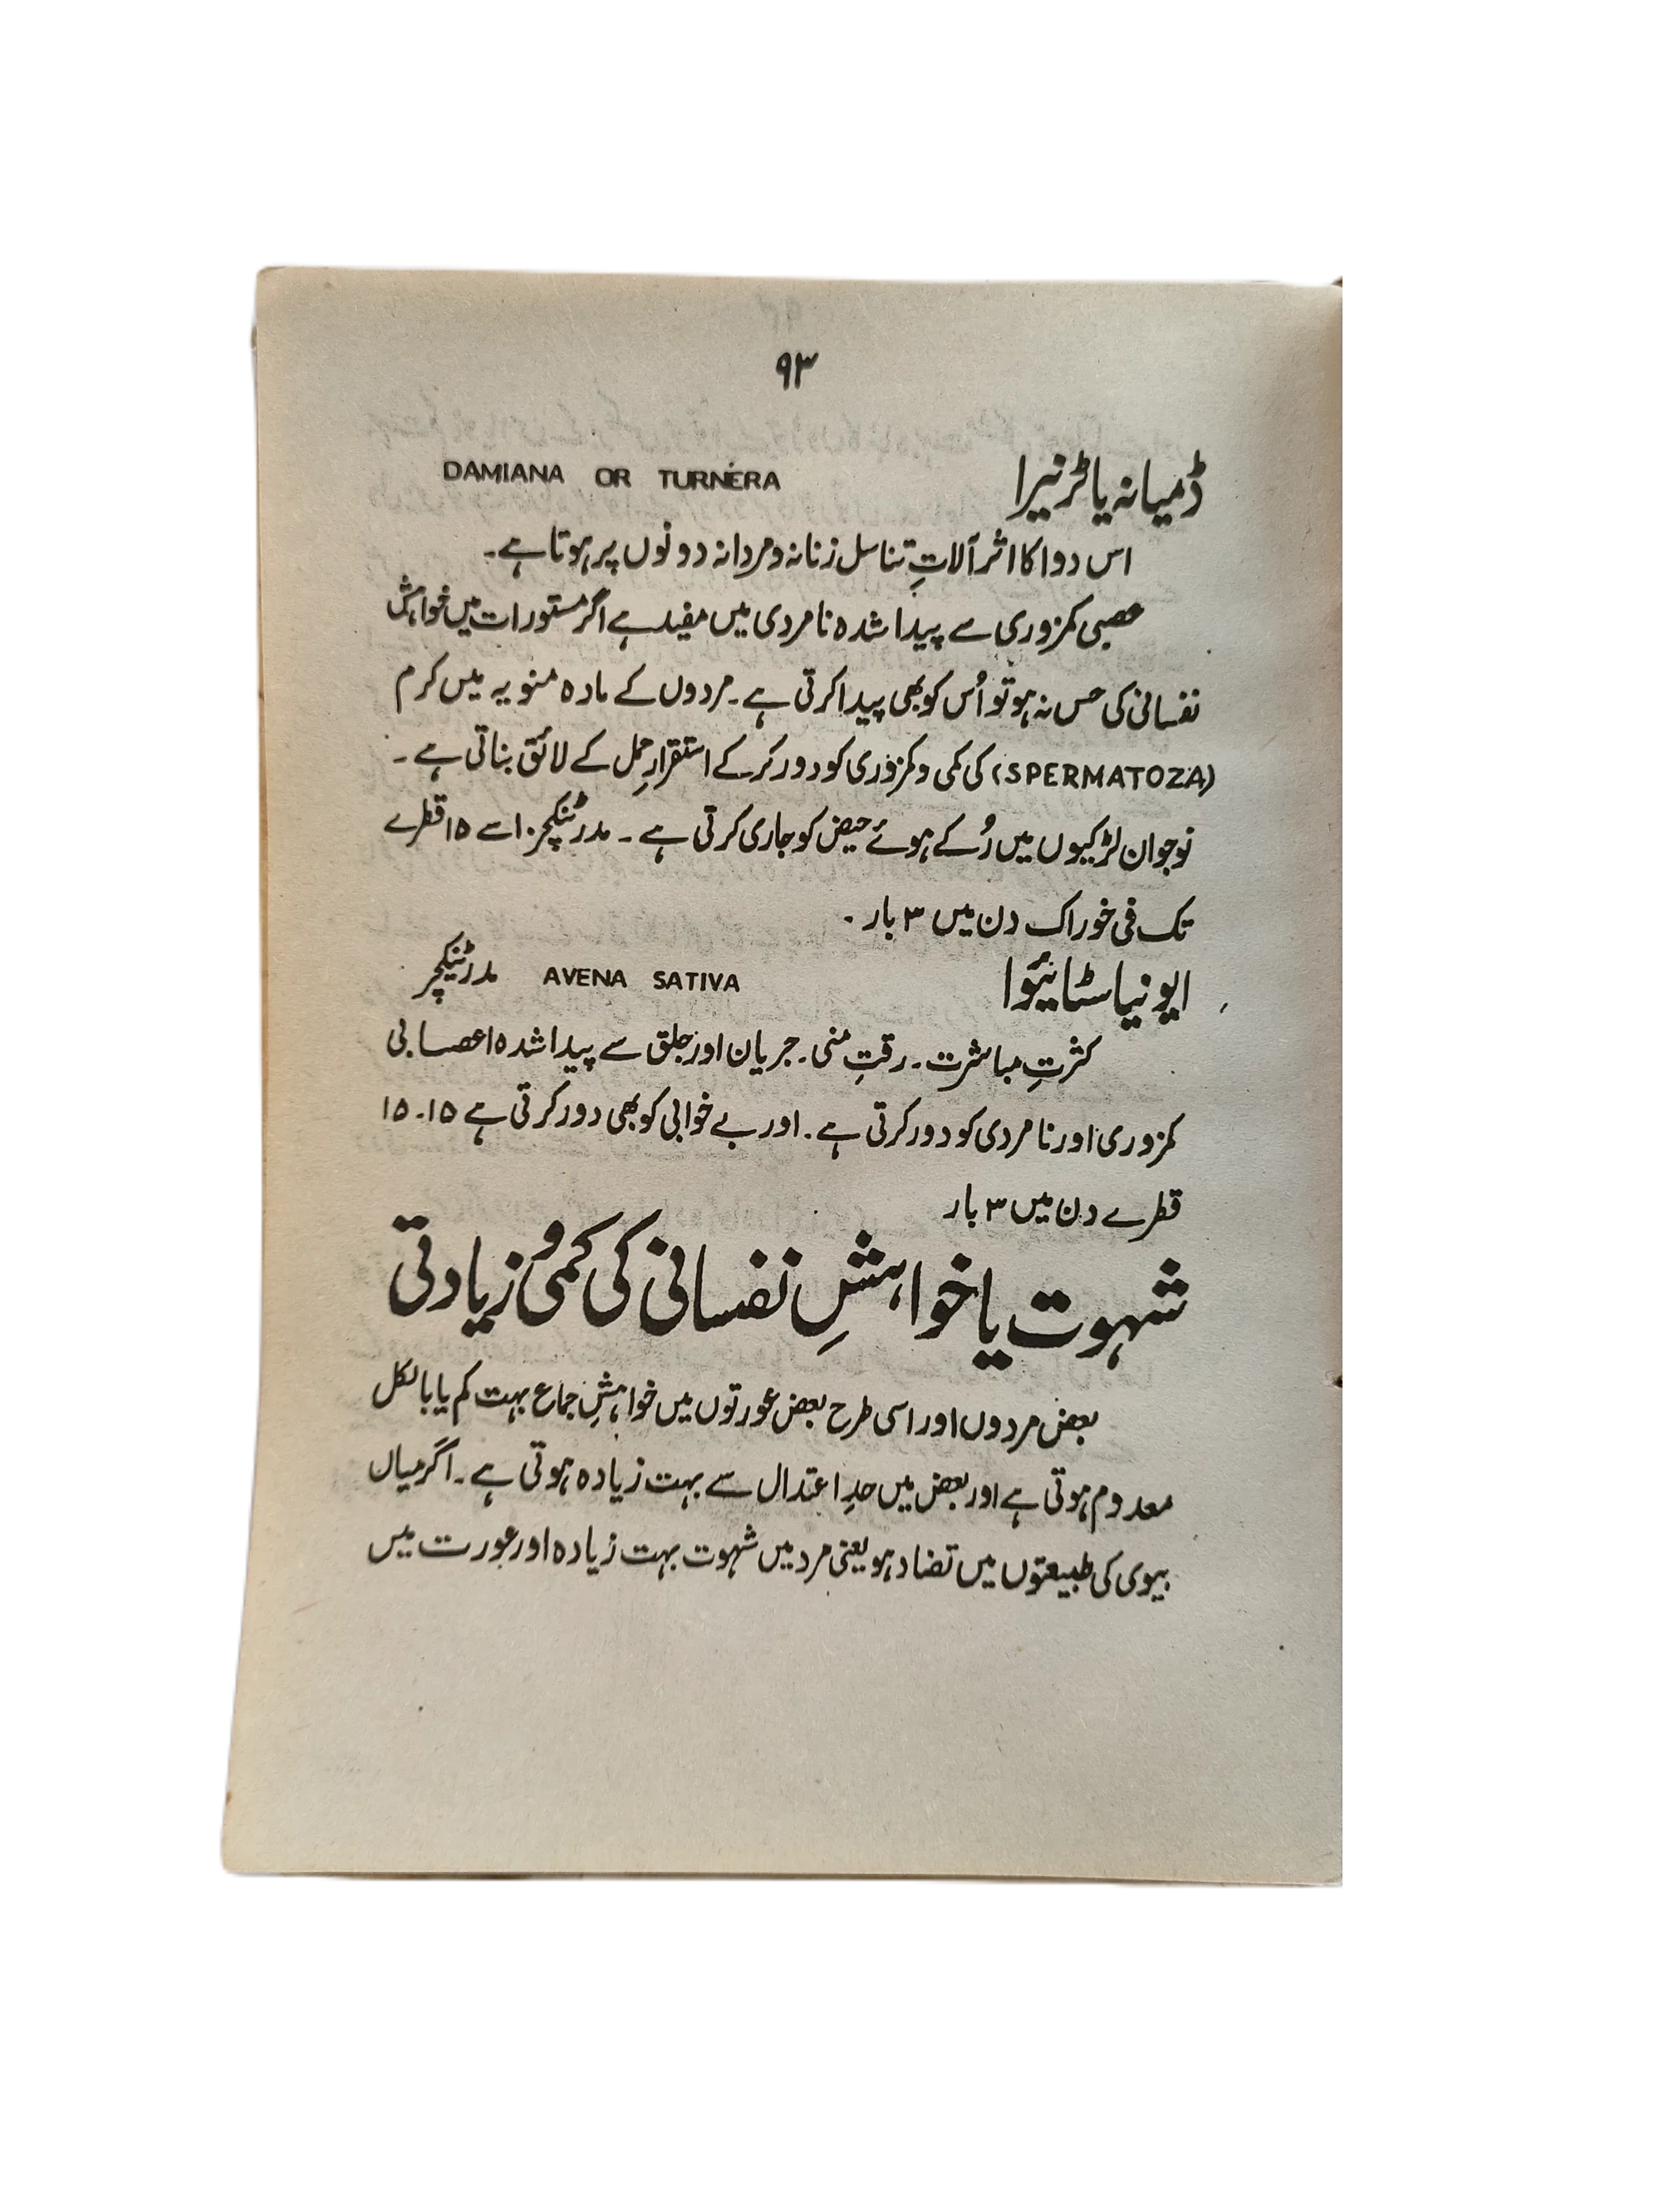 ۹۳
ڈمیانہ یا ٹرنیرا DAMIANA OR TURNERA
اس دوا کا اثر آلاتِ تناسل زنانہ و مردانہ دونوں پر ہوتا ہے۔
عصبی کمزوری سے پیدا شدہ نامردی میں مفید ہے اگر مستورات میں خواہش
نفسانی کی حس نہ ہو تو اُس کو بھی پیدا کرتی ہے۔ مردوں کے مادہ منویہ میں کرم
(SPERMATOZA) کی کمی و کمزوری کو دور کر کے استقرارِ حمل کے لائق بناتی ہے۔
نوجوان لڑکیوں میں رُکے ہوئے حیض کو جاری کرتی ہے۔ مدر ٹنکچر ۱۰ سے ۱۵ قطرے
تک فی خوراک دن میں ۳ بار۔
ایونیا سٹائیوا AVENA SATIVA مدر ٹنکچر
کثرتِ مباشرت۔ رقتِ منی۔ جریان اور جلق سے پیدا شدہ اعصابی
کمزوری اور نامردی کو دور کرتی ہے۔ اور بے خوابی کو بھی دور کرتی ہے ۱۵۔۱۵
قطرے دن میں ۳ بار
شہوت یا خواہشِ نفسانی کی کمی و زیادتی
بعض مردوں اور اسی طرح بعض عورتوں میں خواہشِ جماع بہت کم یا بالکل
معدوم ہوتی ہے اور بعض میں حدِ اعتدال سے بہت زیادہ ہوتی ہے۔ اگر میاں
بیوی کی طبیعتوں میں تضاد ہو یعنی مرد میں شہوت بہت زیادہ اور عورت میں